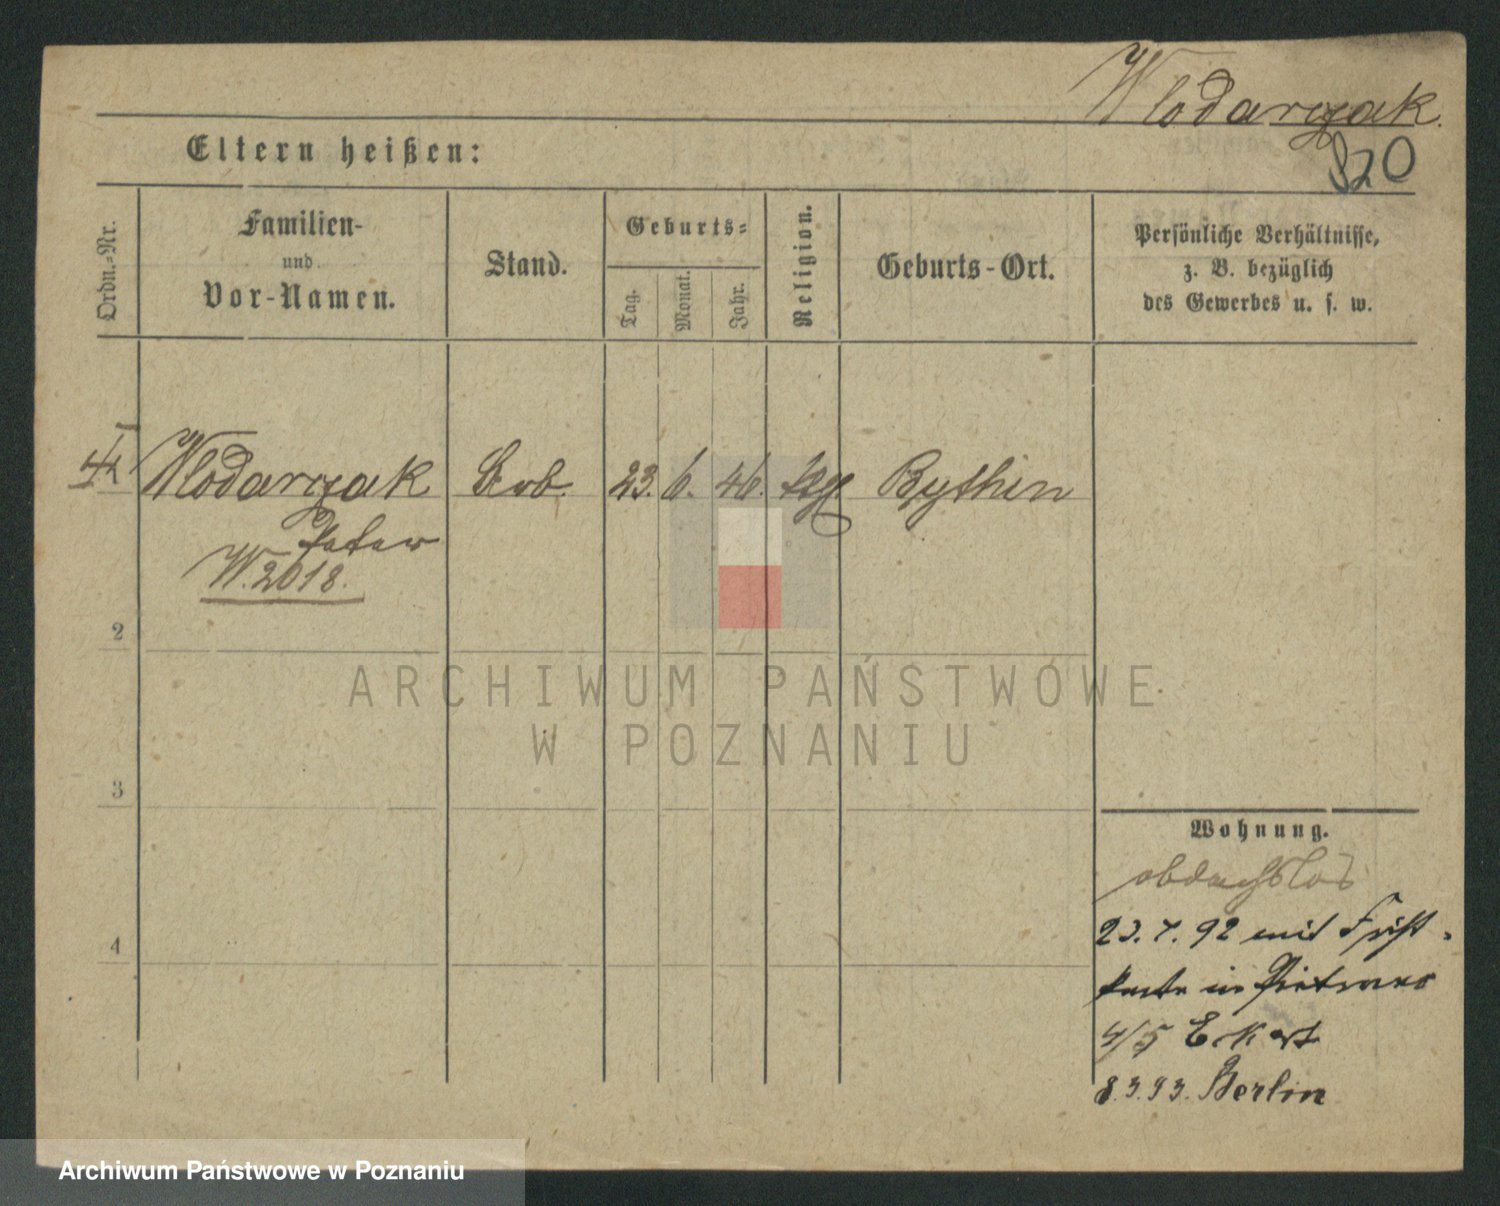 Wlodarczak.
820
Eltern heißen:
Ordn.-Nr.
Familien-
und
Vor-Namen.
Stand.
Geburts-
Tag.
Monat.
Jahr.
Religion.
Geburts-Ort.
Persönliche Verhältnisse,
z. B. bezüglich
des Gewerbes u. s. w.
Wlodarczak Arb. 23. 6. 46. kth Bythin
Peter
W. 2018.
2
3
4
ARCHIWUM PAŃSTWOWE
W POZNANIU
Wohnung.
obdachslos
23. 7. 92 mit
in
4/5 Ekert
8.3.93. Berlin
Archiwum Państwowe w Poznaniu